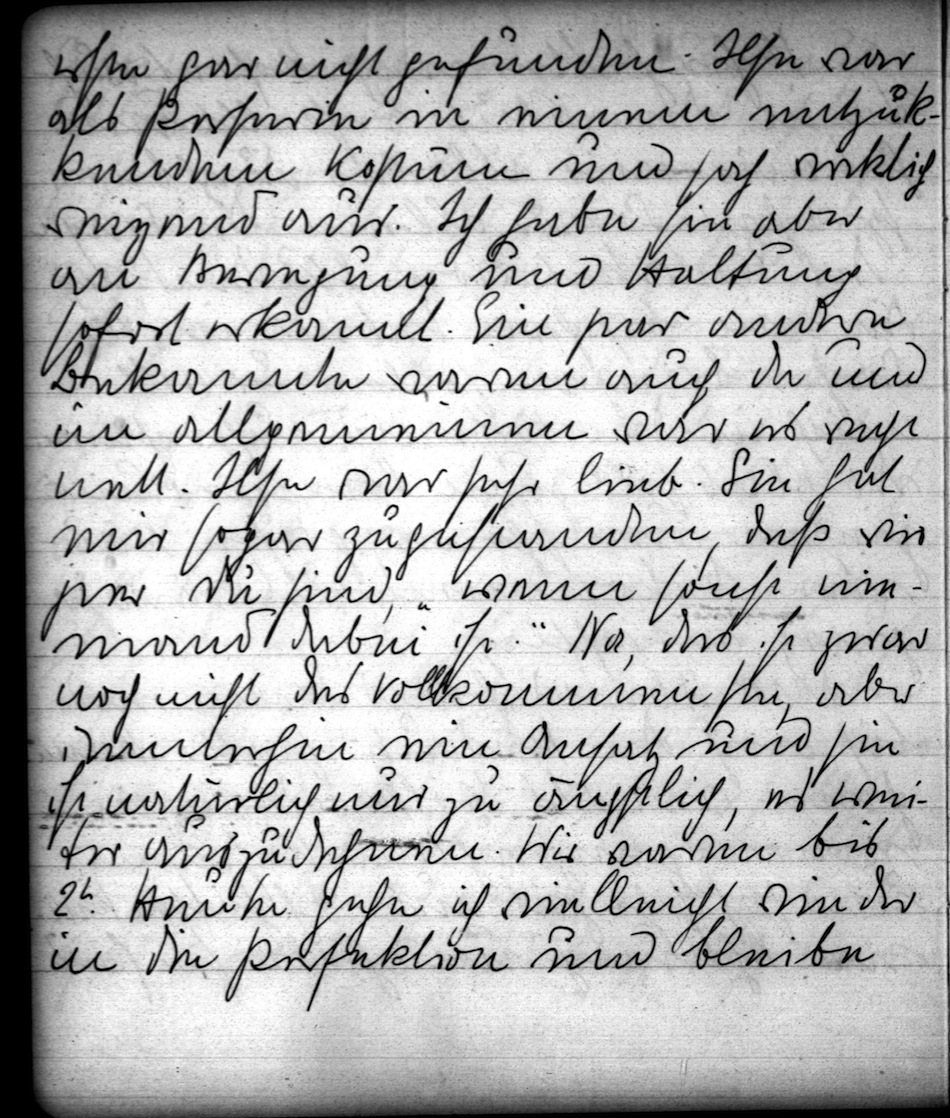 erst gar nicht gefunden. Ilse war
als Perserin in einem entzük-
kenden Kostüm und sah wirklich
reizend aus. Ich habe sie aber
an Bewegung und Haltung
sofort erkannt. Ein paar andere
Bekannte waren auch da und
im allgemeinen war es recht
nett. Ilse war sehr lieb. Sie hat
mir sogar zugestanden, daß wir
per Du sind, „wenn sonst nie-
mand dabei ist." Na, das ist zwar
noch nicht das Vollkommenste, aber
immerhin ein Ansatz und sie
ist natürlich nur zu ängstlich, es wei-
ter auszudehnen. Wir waren bis
2h. Heute gehe ich vielleicht wieder
in die und bleibe